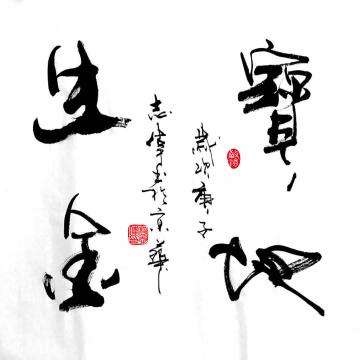 寶地
生金
歲次庚子
志偉書於京華